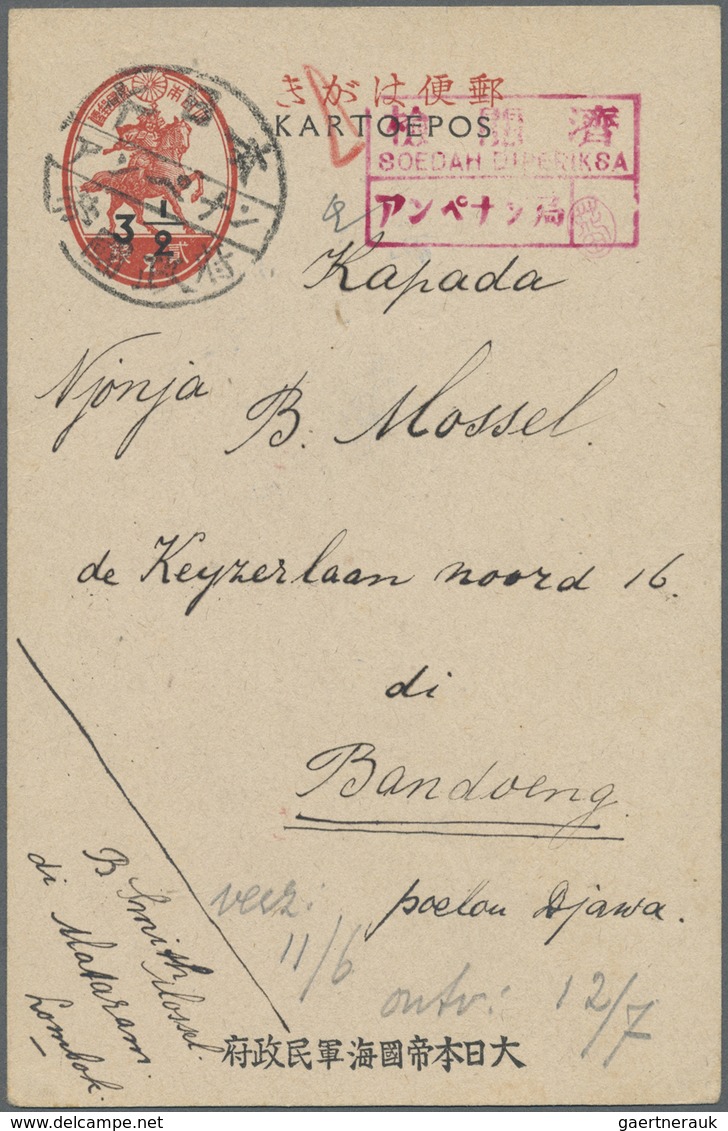 きがは便郵
KARTOEPOS
検閲濟
SOEDAH DIPERIKSA
アンペナン局
3 1/2
Kapada
Njonja B. Mossel.
de Keyzerlaan noord 16.
di
Bandoeng.
poelou Djawa.
verz:
11/6
ontv: 12/7
B Smith Mossel.
di Mataram
Lombok.
府政民軍海國帝本日大
gaertnerauk